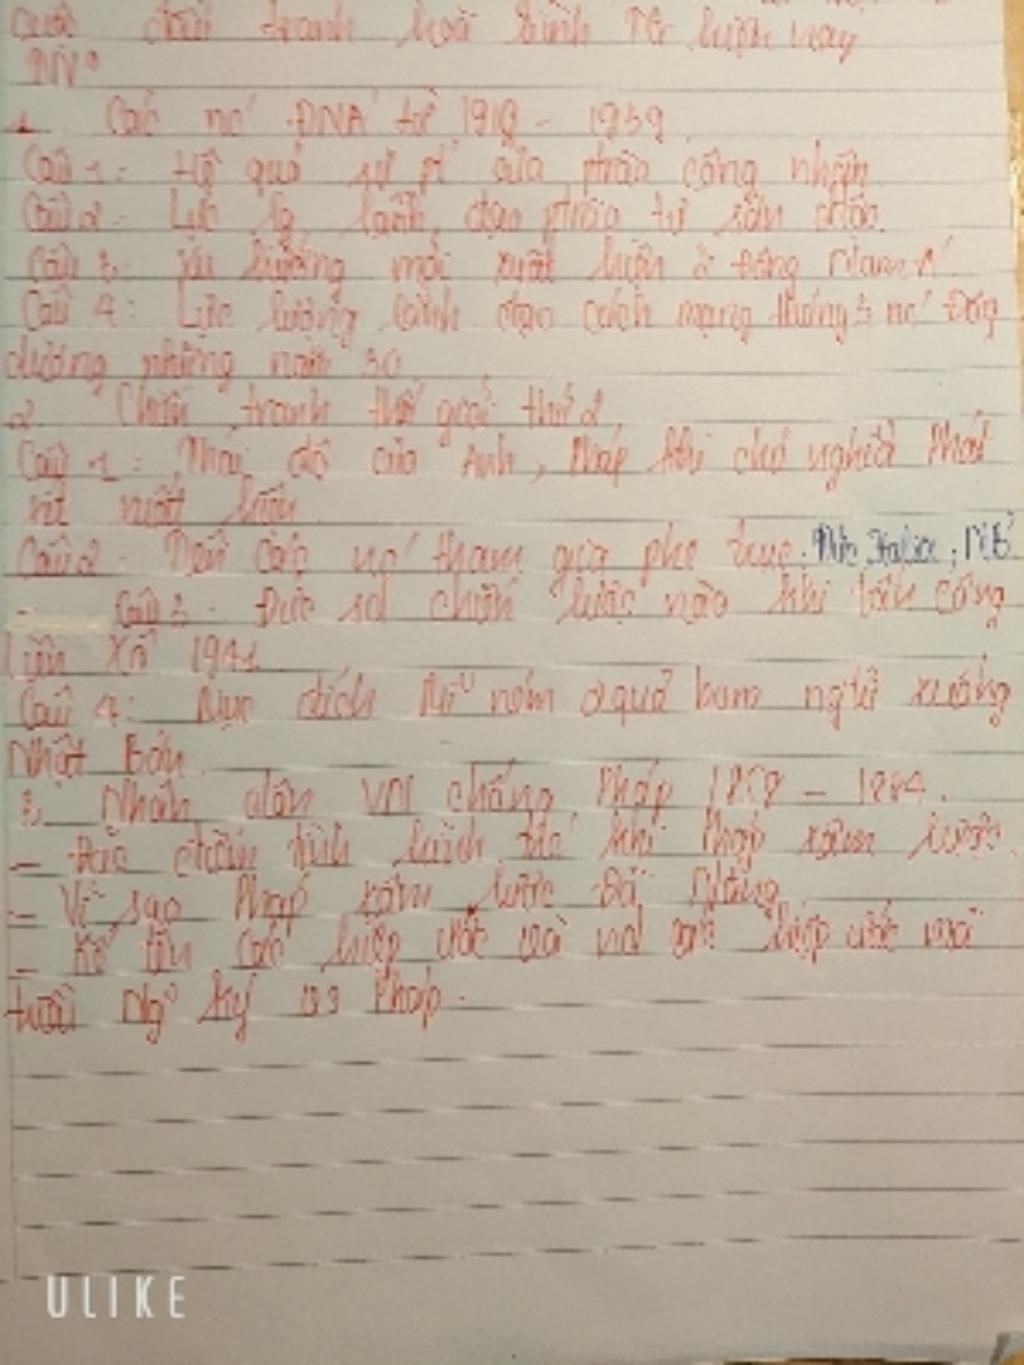 cuộc đấu tranh hoà bình hiện nay
1. Các nc' ĐNA' từ 1918 - 1939
Câu 1: Hệ quả sự pt của ptrào công nhân
Câu 2: Lực lg lãnh đạo ptrào tư sản dtộc
Câu 3: Xu hướng mới xuất hiện ở Đông Nam Á
Câu 4: Lực lượng lãnh đạo cách mạng tháng 3 nc' Đông
dương những năm 30
2. Chiến tranh thế giới thứ 2
Câu 1: Thái độ của Anh, Pháp khi chủ nghĩa Phát
xít xuất hiện
Câu 2: Tên các nc' tham gia phe trục. Đức, Italia,
- Câu 3: Đức sd chiến lược nào khi tấn công
Liên Xô 1941
Câu 4: Mục đích Mĩ ném 2 quả bom ngtử xuống
Nhật Bản
3. Nhân dân VN chống Pháp 1858 - 1884.
- Đặc điểm tình hình khi Pháp xâm lược
- Vì sao Pháp xâm lược Đà Nẵng
- Kể tên các hiệp ước và nd hiệp ước mà
triều Ng~ ký vs Pháp.
ULIKE